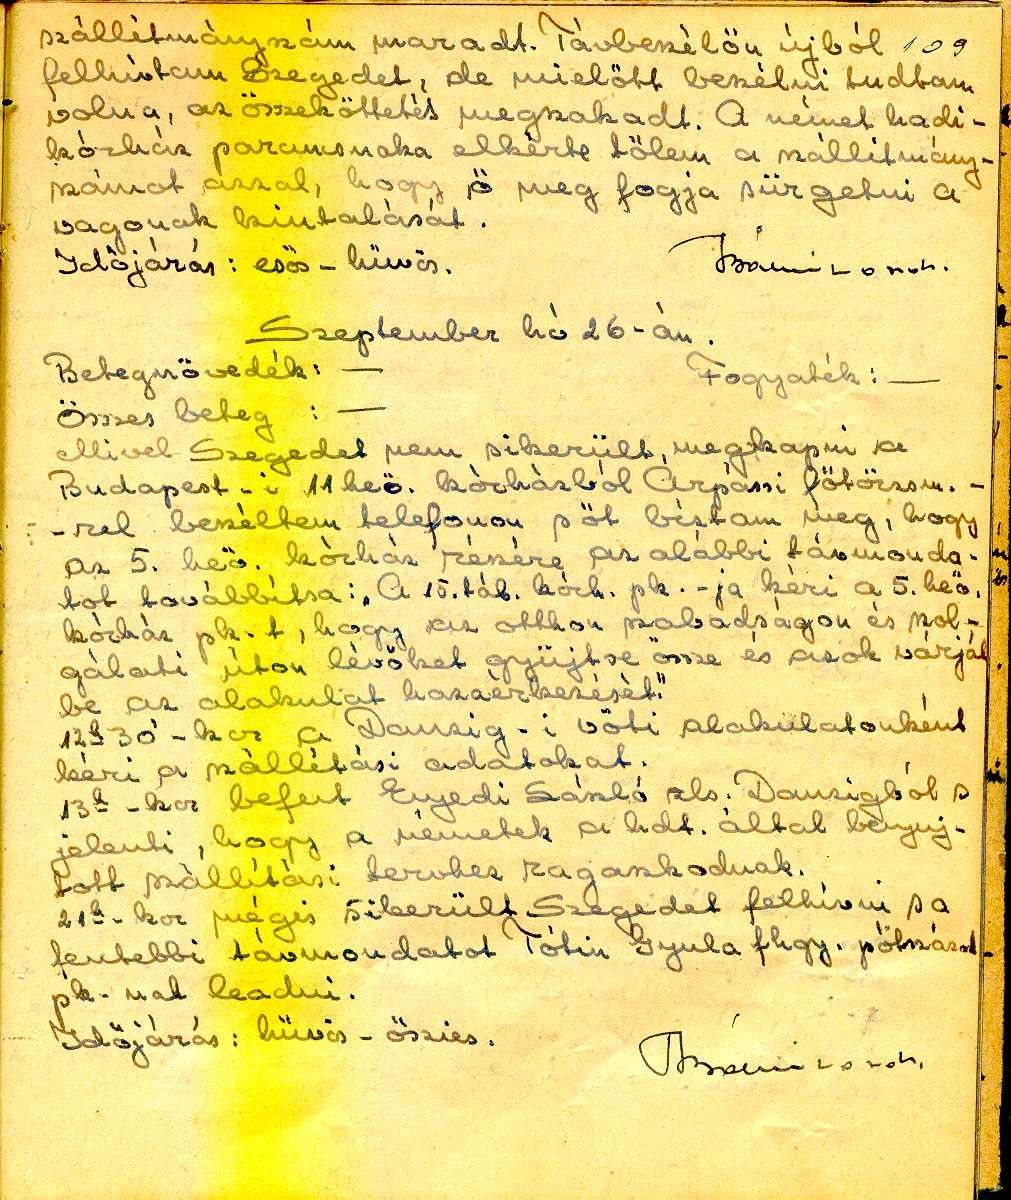 szállítmányszám maradt. Távbeszélőn újból 109
felhívtam Szegedet, de mielőtt beszélni tudtam
volna, az összeköttetés megszakadt. A német hadi-
kórház parancsnoka elkérte tőlem a szállítmány-
számot azzal, hogy ő meg fogja sürgetni a
vagonok kiutalását.
Időjárás: esős - hűvös.
Szeptember hó 26-án.
Betegnövedék: — Fogyaték: —
Összes beteg : —
Mivel Szegedet nem sikerült, megkapni a
Budapest-i 11 heö. kórházból Árpássi főtörzsm. -
-rel beszéltem telefonon s őt bíztam meg, hogy
az 5. heö. kórház részére az alábbi távmonda-
tot továbbítsa: „A 15. táb. kórh. pk.-ja kéri a 5. heö.
kórház pk.-t, hogy az otthon szabadságon és szol-
gálati úton lévőket gyűjtse össze és azok várják
be az alakulat hazaérkezését."
12h 30'-kor a Danzig-i vöti alakulatonként
kéri a szállítási adatokat.
13h-kor befut Enyedi László zls. Danzigból s
jelenti, hogy a németek a hdt. által benyuj-
tott szállítási tervhez ragaszkodnak.
21h-kor mégis sikerült Szegedet felhívni s a
fentebbi távmondatot Tótin Gyula fhgy. pótszázad-
pk-nak leadni.
Időjárás: hűvös - őszies.